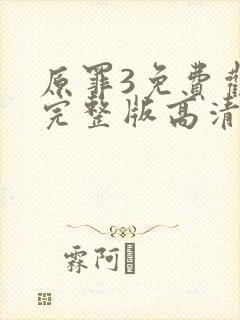 原罪3免費
完整版高清
霖阿